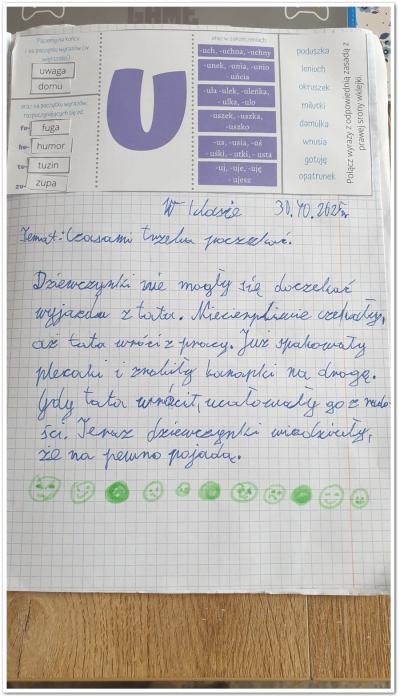 GAME
i na początku wyrazów (w
uwaga
domu
oraz na początku wyrazów,
rozpoczynających się od:
fu- fuga
hu- humor
tu- tuzin
zu- zupa
u
oraz w zakończeniach:
-uch, -uchna, -uchny
-unek, -unia, -unio
- uńcia
-ula -ulek, -uleńka,
- ulka, -ulo
-uszek, -uszka,
-uszko
-us, -usia, -uś
- uśki, -utki, - usta
-uj, -uje, -uję
- ujesz
poduszka
leniuch
okruszek
milutki
damulka
wnusia
gotuję
opatrunek
Połącz wyrazy z odpowiednią zasadą z
prawej strony wklejki.
W klasie 30.10.2025r.
Temat: Czasami trzeba poczekać.
Dziewczynki nie mogły się doczekać
wyjazdu z tatą. Niecierpliwie czekały,
aż tata wróci z pracy. Już spakowały
plecaki i zrobiły kanapki na drogę.
Gdy tata wrócił, ucałowały go z rado-
ści. Teraz dziewczynki wiedziały,
że na pewno pojadą.